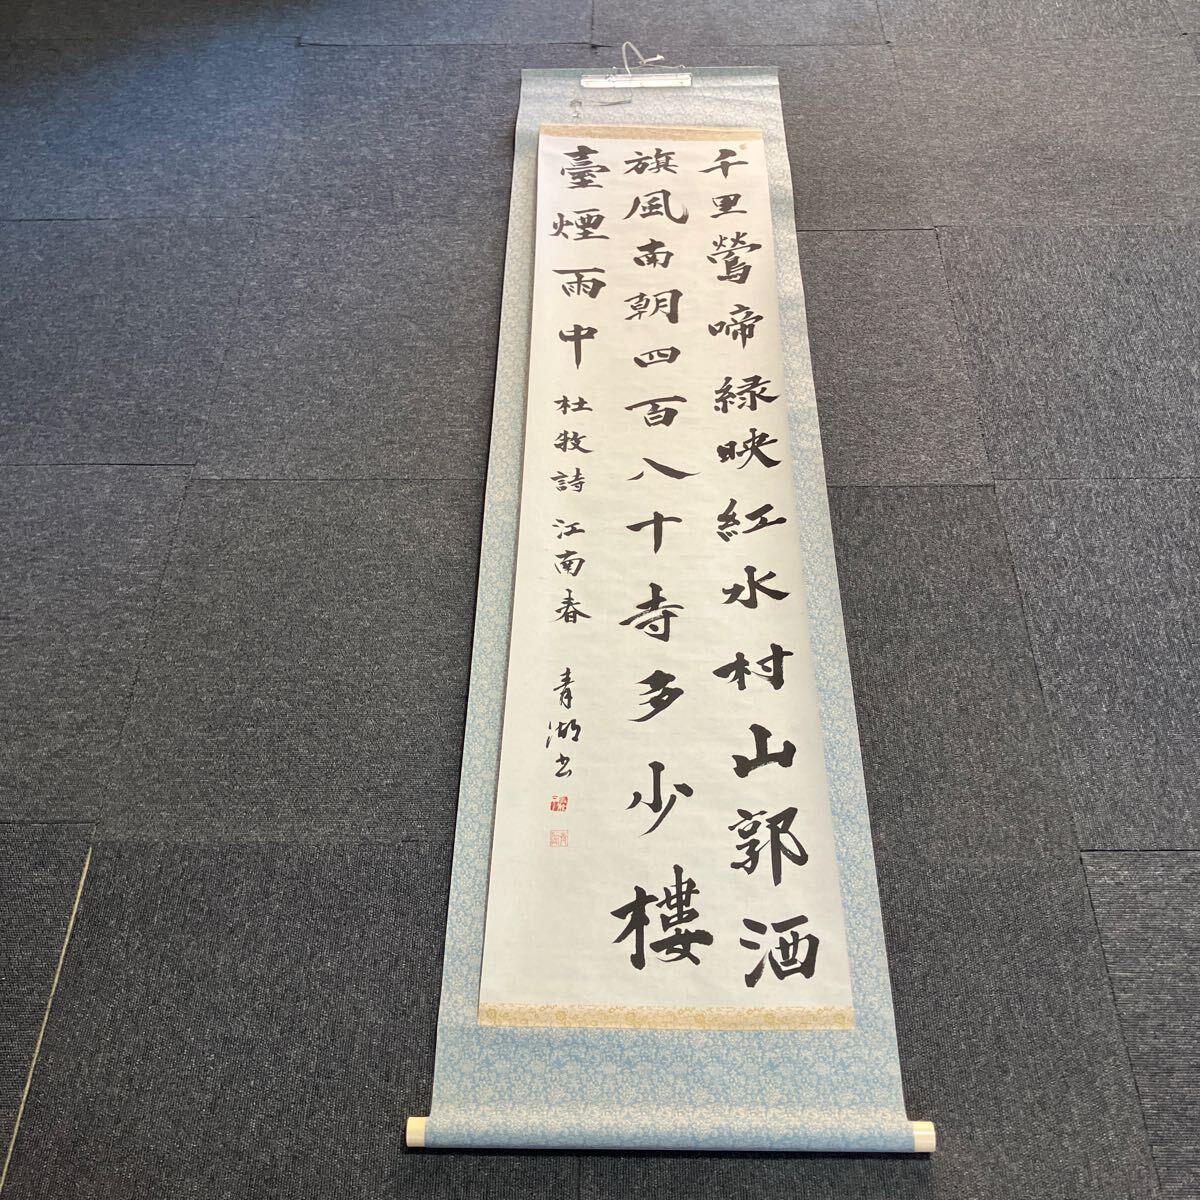 千里鶯啼緑映紅水村山郭酒
旗風南朝四百八十寺多少樓
臺煙雨中 杜牧詩 江南春 青湖书